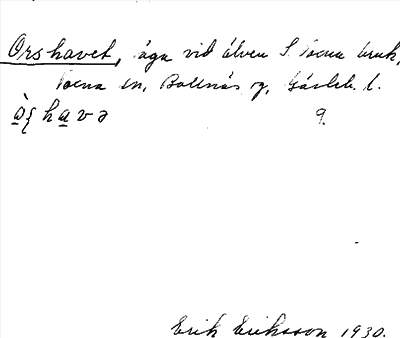 Orshavet, äga vid älven S. Voxna bruk,
Voxna sn, Bollnäs fg, Gävleb. l.
9.
Erik Eriksson 1930.